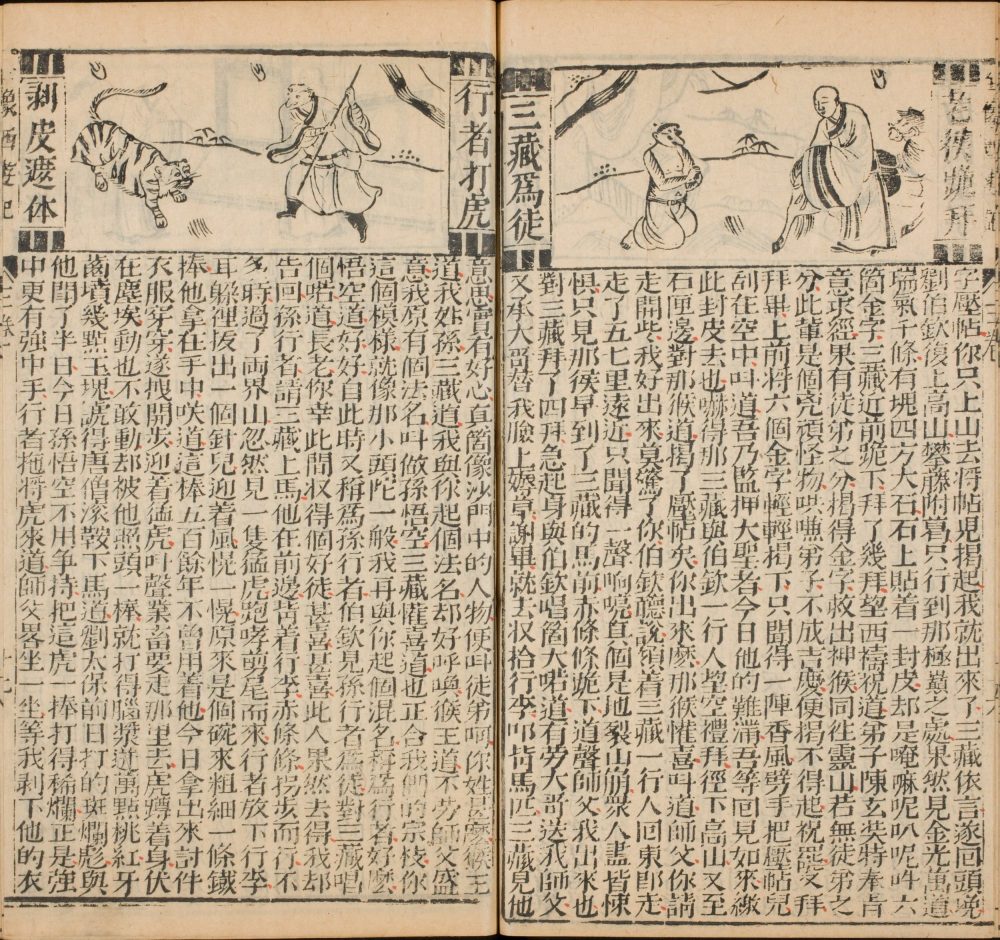 老猴跪拜
三藏爲徒
字壓帖你只上山去將帖兒揭起我就出來了三藏依言遂回頭晚
劉伯欽復上高山攀藤附葛只行到那極巔之處果然見金光萬道
瑞氣千條有塊四方大石石上貼着一封皮却是唵嘛呢叭呢吽六
箇金字三藏近前跪下拜了幾拜望西禱祝道弟子陳玄奘特奉旨
意求經果有徒弟之分揭得金字救出神猴同徃靈山若無徒弟之
分此輩是個兇頑怪物哄嚥弟子不成吉慶便揭不得起祝罷又拜
拜畢上前將六個金字輕輕揭下只聞得一陣香風劈手把壓帖兒
刮在空中叫道吾乃監押大聖者今日他的難滿吾等囘見如來繳
此封皮去也嚇得那三藏與伯欽一行人望空禮拜徑下高山又至
石匣邊對那猴道揭了壓帖矣你出來麽那猴懽喜叫道師父你請
走開些我好出來莫驚了你伯欽聽說領着三藏一行人回東即走
走了五七里遠近只聞得一聲响喨真個是地裂山崩衆人盡皆悚
惧只見那猴早到了三藏的馬前赤條條跪下道聲師父我出來也
對三藏拜了四拜急起身與伯欽唱箇大喏道有劳大哥送我師父
又承大哥替我臉上薅草謝畢就去収拾行李叩背馬匹三藏見他
行者打虎
剥皮遮体
意思實有好心真箇像沙門中的人物便叫徒弟呵你姓甚麽猴王
道我姓孫三藏道我與你起個法名却好呼喚猴王道不劳師父盛
意我原有個法名叫做孫悟空三藏懽喜道也正合我們的宗枝你
這個模樣就像那小頭陀一般我再與你起個混名稱爲行者好麽
悟空道好好自此時又稱爲孫行者伯欽見孫行者爲徒對三藏唱
個喏道長老你幸此間収得個好徒甚喜甚喜此人果然去得我却
告回孫行者請三藏上馬他在前邊背着行李赤條條拐步而行不
多時過了両界山忽然見一隻猛虎跑哮剪尾而來行者放下行李
耳躲裡拔出一個針兒迎着風愰一愰原來是個碗來粗細一條鐵
棒他拿在手中咲道這棒五百餘年不曾用着他今日拿出來討件
衣服穿穿遂拽開步迎着猛虎叶聲業畜要走那里去虎蹲着身伏
在塵埃動也不敢動却被他照頭一棒就打得腦漿迸萬點桃紅牙
齒墳幾點玉塊諕得唐僧滚鞍下馬道劉太保前日打的斑斕彪與
他閗了半日今日孫悟空不用争持把這虎一捧打得稀爛正是強
中更有強中手行者拖將虎來道師父畧坐一坐等我剥下他的衣